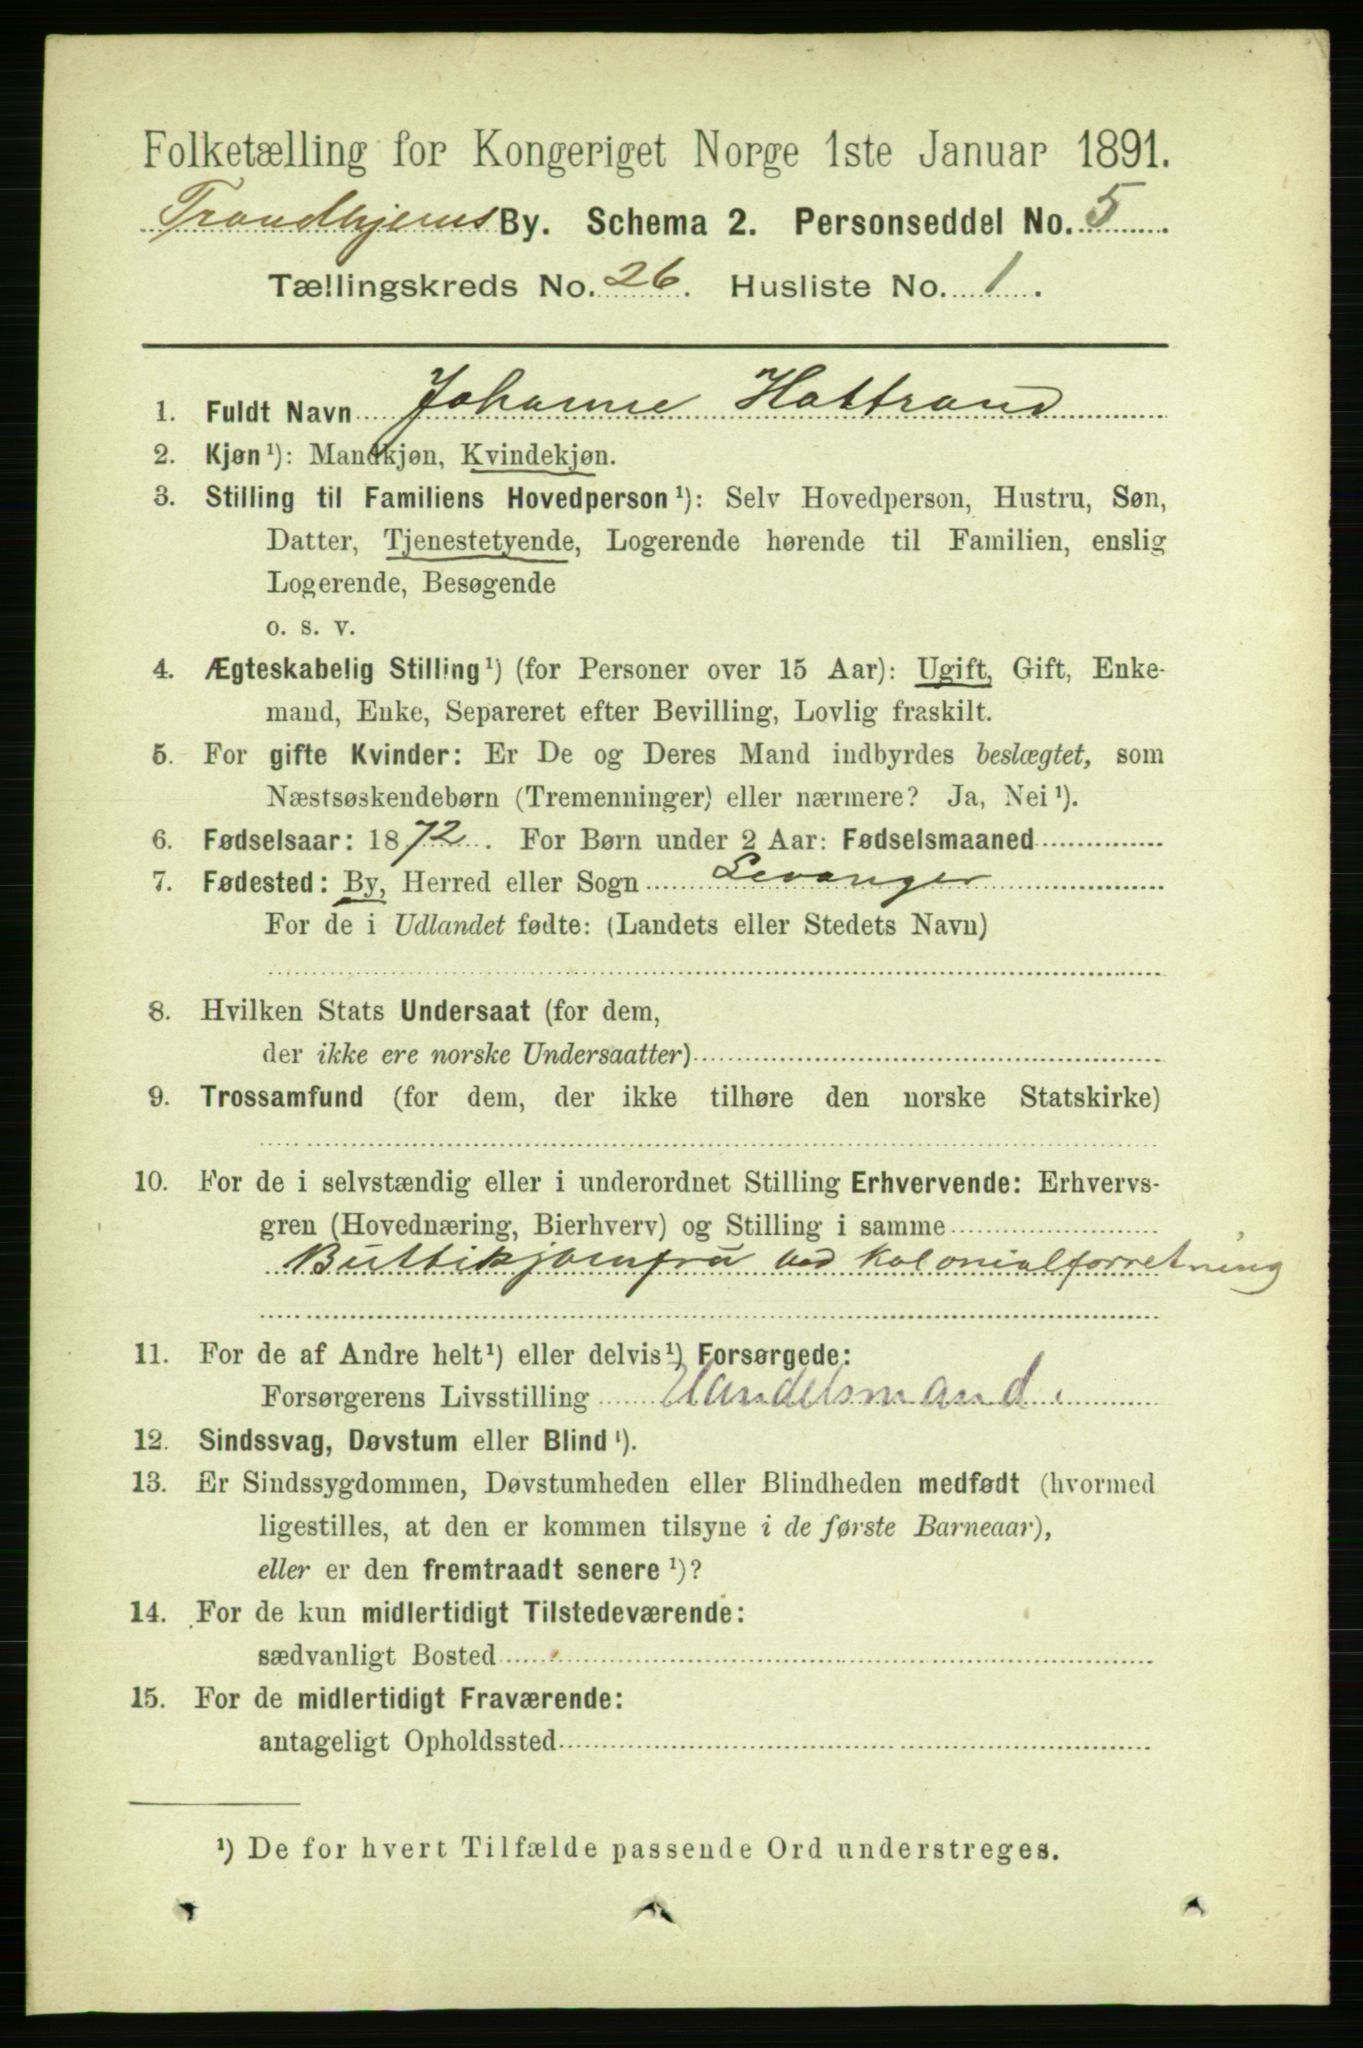 Folketælling for Kongeriget Norge 1ste Januar 1891.
Trondhjems By. Schema 2. Personseddel No. 5.
Tællingskreds No. 26. Husliste No. 1.
1. Fuldt Navn Johanne Hattrand
2. Kjøn ¹): Mandkjøn, Kvindekjøn.
3. Stilling til Familiens Hovedperson ¹): Selv Hovedperson, Hustru, Søn,
Datter, Tjenestetyende, Logerende hørende til Familien, enslig
Logerende, Besøgende
o. s. v.
4. Ægteskabelig Stilling ¹) (for Personer over 15 Aar): Ugift, Gift, Enke-
mand, Enke, Separeret efter Bevilling, Lovlig fraskilt.
5. For gifte Kvinder: Er De og Deres Mand indbyrdes beslægtet, som
Næstsøskendebørn (Tremenninger) eller nærmere? Ja, Nei ¹).
6. Fødselsaar: 1872. For Børn under 2 Aar: Fødselsmaaned
7. Fødested: By, Herred eller Sogn Levanger
For de i Udlandet fødte: (Landets eller Stedets Navn)
8. Hvilken Stats Undersaat (for dem,
der ikke ere norske Undersaatter)
9. Trossamfund (for dem, der ikke tilhøre den norske Statskirke)
10. For de i selvstændig eller i underordnet Stilling Erhvervende: Erhvervs-
gren (Hovednæring, Bierhverv) og Stilling i samme
Buttikjomfru ved Kolonialforretning
11. For de af Andre helt ¹) eller delvis ¹) Forsørgede:
Forsørgerens Livsstilling Handelsmand.
12. Sindssvag, Døvstum eller Blind ¹).
13. Er Sindssygdommen, Døvstumheden eller Blindheden medfødt (hvormed
ligestilles, at den er kommen tilsyne i de første Barneaar),
eller er den fremtraadt senere ¹)?
14. For de kun midlertidigt Tilstedeværende:
sædvanligt Bosted
15. For de midlertidigt Fraværende:
antageligt Opholdssted
¹) De for hvert Tilfælde passende Ord understreges.